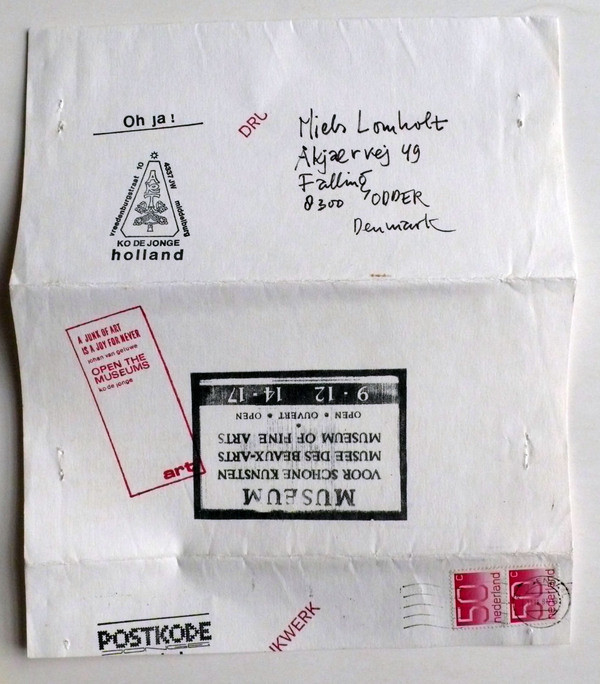 Oh ja!
DRU
Niels Lomholt
Åkjærvej 49
Falling
8300 ODDER
Denmark
vreedenburgstraat 10
4337 JW middelburg
KO DE JONGE
holland
A JUNK OF ART
IS A JOY FOR NEVER
johan van geluwe
OPEN THE
MUSEUMS
ko de jonge
art
MUSEUM
VOOR SCHONE KUNSTEN
MUSEE DES BEAUX-ARTS
MUSEUM OF FINE ARTS
OPEN • OUVERT • OPEN
9 - 12 14 - 17
POSTKODE
KWERK
50 c
nederland
50 c
nederland